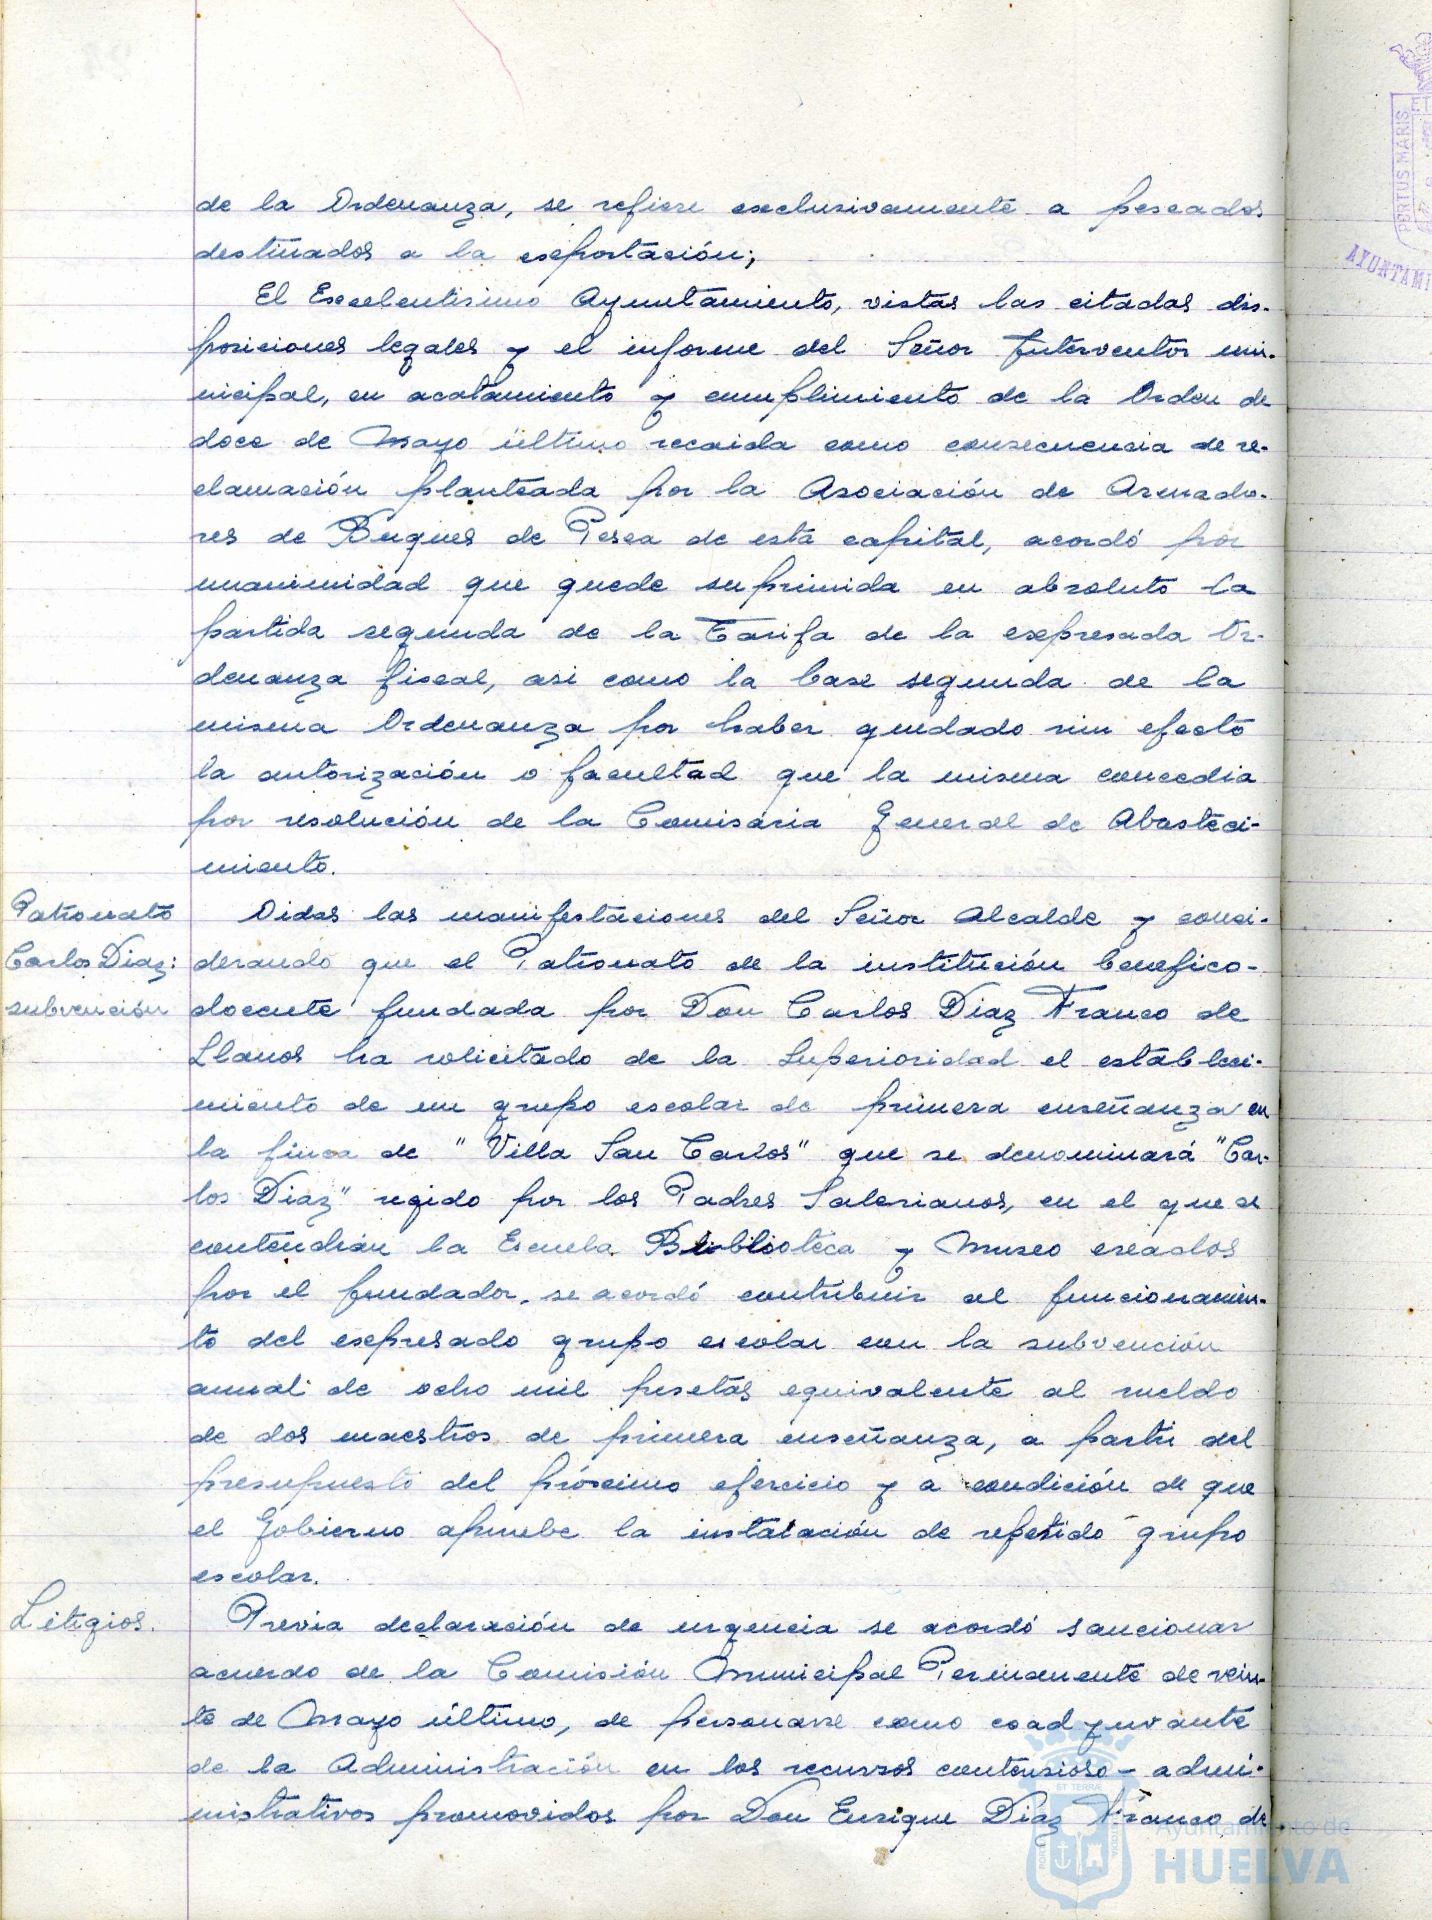 de la Ordenanza, se refiere exclusivamente a pescados
destinados a la exportación;
El Excelentisimo Ayuntamiento, vistas las citadas dis-
posiciones legales y el informe del Señor Interventor mu-
nicipal, en acatamiento y cumplimiento de la Orden de
doce de Mayo último recaida como consecuencia de re-
clamación planteada por la Asociación de Armado-
res de Buques de Pesca de esta capital, acordó por
unanimidad que quede suprimida en absoluto la
partida segunda de la Tarifa de la expresada Or-
denanza fiscal, asi como la base segunda de la
misma Ordenanza por haber quedado sin efecto
la autorización o facultad que la misma concedia
por resolución de la Comisaria General de Abasteci-
miento.
Patronato
Carlos Diaz:
subvención
Oidas las manifestaciones del Señor Alcalde y consi-
derando que el Patronato de la institución benefico-
docente fundada por Don Carlos Diaz Franco de
Llanos ha solicitado de la Superioridad el estableci-
miento de un grupo escolar de primera enseñanza en
la finca de "Villa San Carlos" que se denominará "Car-
los Diaz" regido por los Padres Salesianos, en el que se
contendrán la Escuela Biblioteca y Museo creados
por el fundador, se acordó contribuir al funcionamien-
to del expresado grupo escolar con la subvención
anual de ocho mil pesetas equivalente al sueldo
de dos maestros de primera enseñanza, a partir del
presupuesto del próximo ejercicio y a condición de que
el Gobierno apruebe la instalación de repetido grupo
escolar.
Litigios.
Previa declaración de urgencia se acordó sancionar
acuerdo de la Comisión Municipal Permanente de vein-
te de Mayo último, de personarse como coadyuvante
de la Administración en los recursos contensioso-admi-
nistrativos promovidos por Don Enrique Diaz Franco de
PORTUS MARIS
ET
AYUNTAMI
ET TERRÆ
Ayuntamiento de
HUELVA